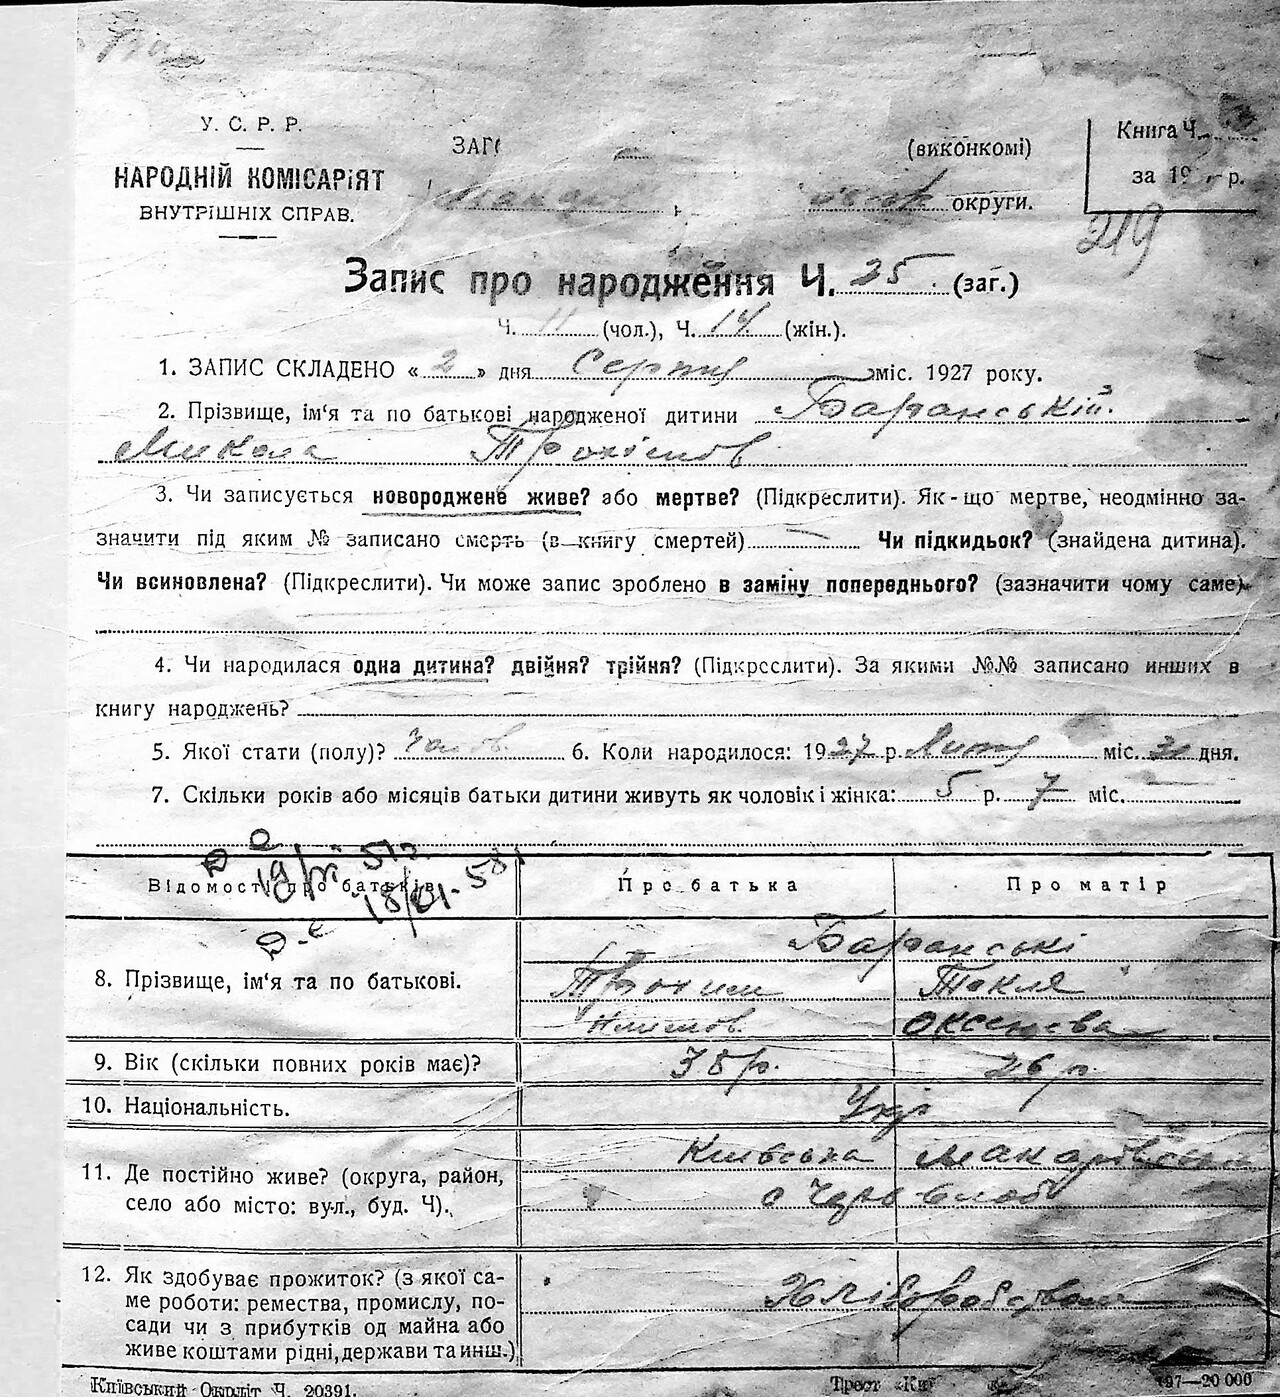 У. С. Р. Р.
НАРОДНІЙ КОМІСАРІЯТ
ВНУТРІШНІХ СПРАВ.
(виконкомі)
округи.
Книга Ч.
за 19 р.
219
Запис про народження Ч. 25 (заг.)
Ч. 11 (чол.), Ч. 14 (жін.).
1. ЗАПИС СКЛАДЕНО « 2 » дня Серпня міс. 1927 року.
2. Прізвище, ім‘я та по батькові народженої дитини Баранській
Микола Трохимов
3. Чи записується новороджене живе? або мертве? (Підкреслити). Як-що мертве, неодмінно за-
значити під яким № записано смерть (в книгу смертей) Чи підкидьок? (знайдена дитина).
Чи всиновлена? (Підкреслити). Чи може запис зроблено в заміну попереднього? (зазначити чому саме)
4. Чи народилася одна дитина? двійня? трійня? (Підкреслити). За якими №№ записано инших в
книгу народжень?
5. Якої стати (полу)? Чолов. 6. Коли народилося: 1927 р. Липня міс. дня.
7. Скільки років або місяців батьки дитини живуть як чоловік і жінка: 5 р. 7 міс.
Відомості про батьків Про батька Про матір
8. Прізвище, ім‘я та по батькові.
Баранські
Трохим Текля
Оксентєва
9. Вік (скільки повних років має)? 38 р. 26 р.
10. Національність. Укр
11. Де постійно живе? (округа, район,
село або місто: вул., буд. Ч).
Київська Макарівський
с Чорн Слоб
12. Як здобуває прожиток? (з якої са-
ме роботи: ремества, промислу, по-
сади чи з прибутків од майна або
живе коштами рідні, держави та инш.)
Хліборобством
Київський Окрліт Ч. 20391.
Трест «Киї
97—20 000